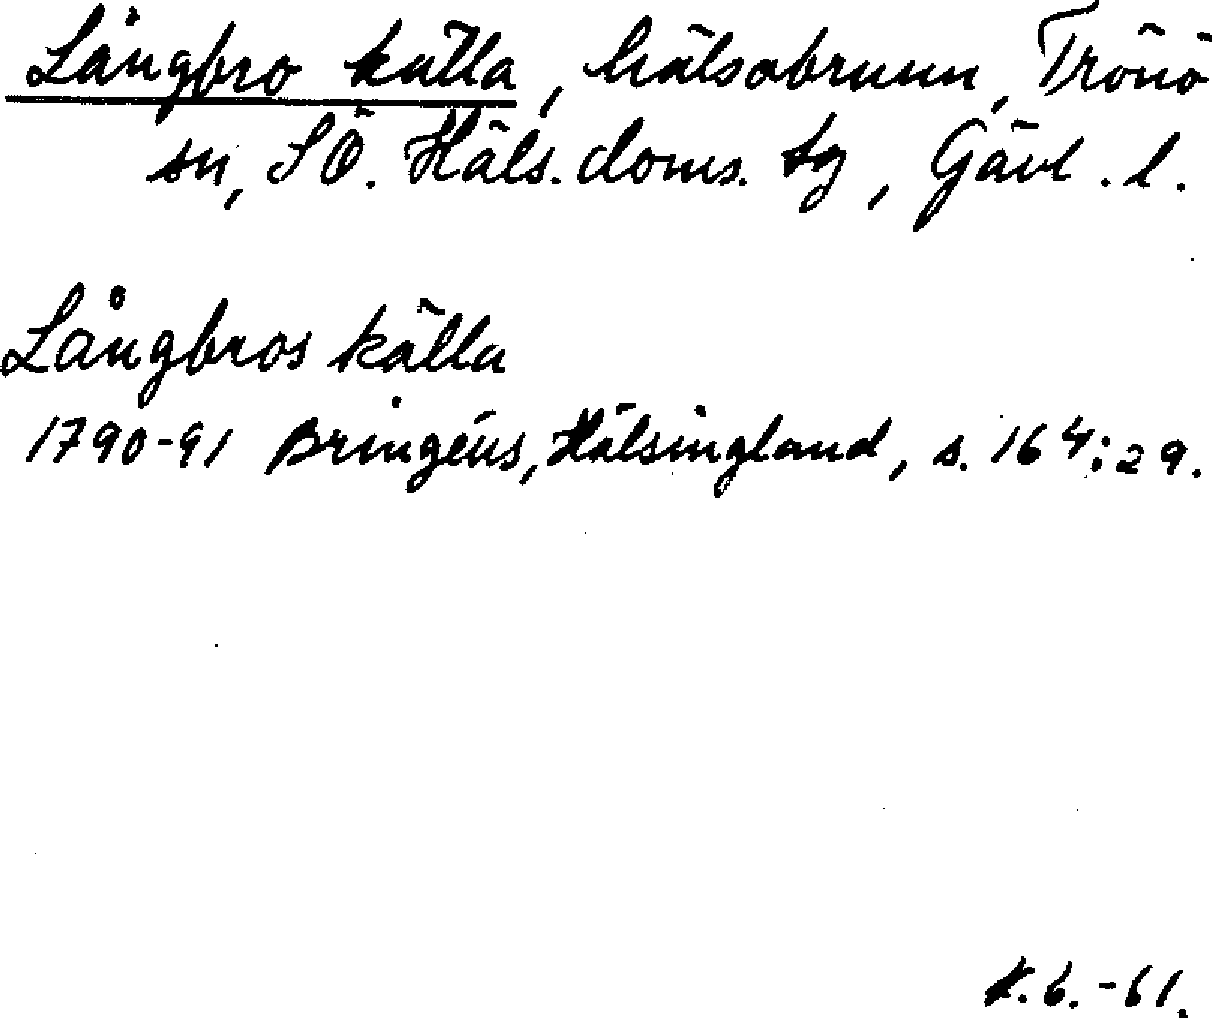 Långbro källa, hälsobrunn, Trönö
sn, SÖ. Häls. doms. tg, Gävl. l.
Långbros källa
1790-91 Bringéus, Hälsingland, s. 164:29.
K.G.-61.